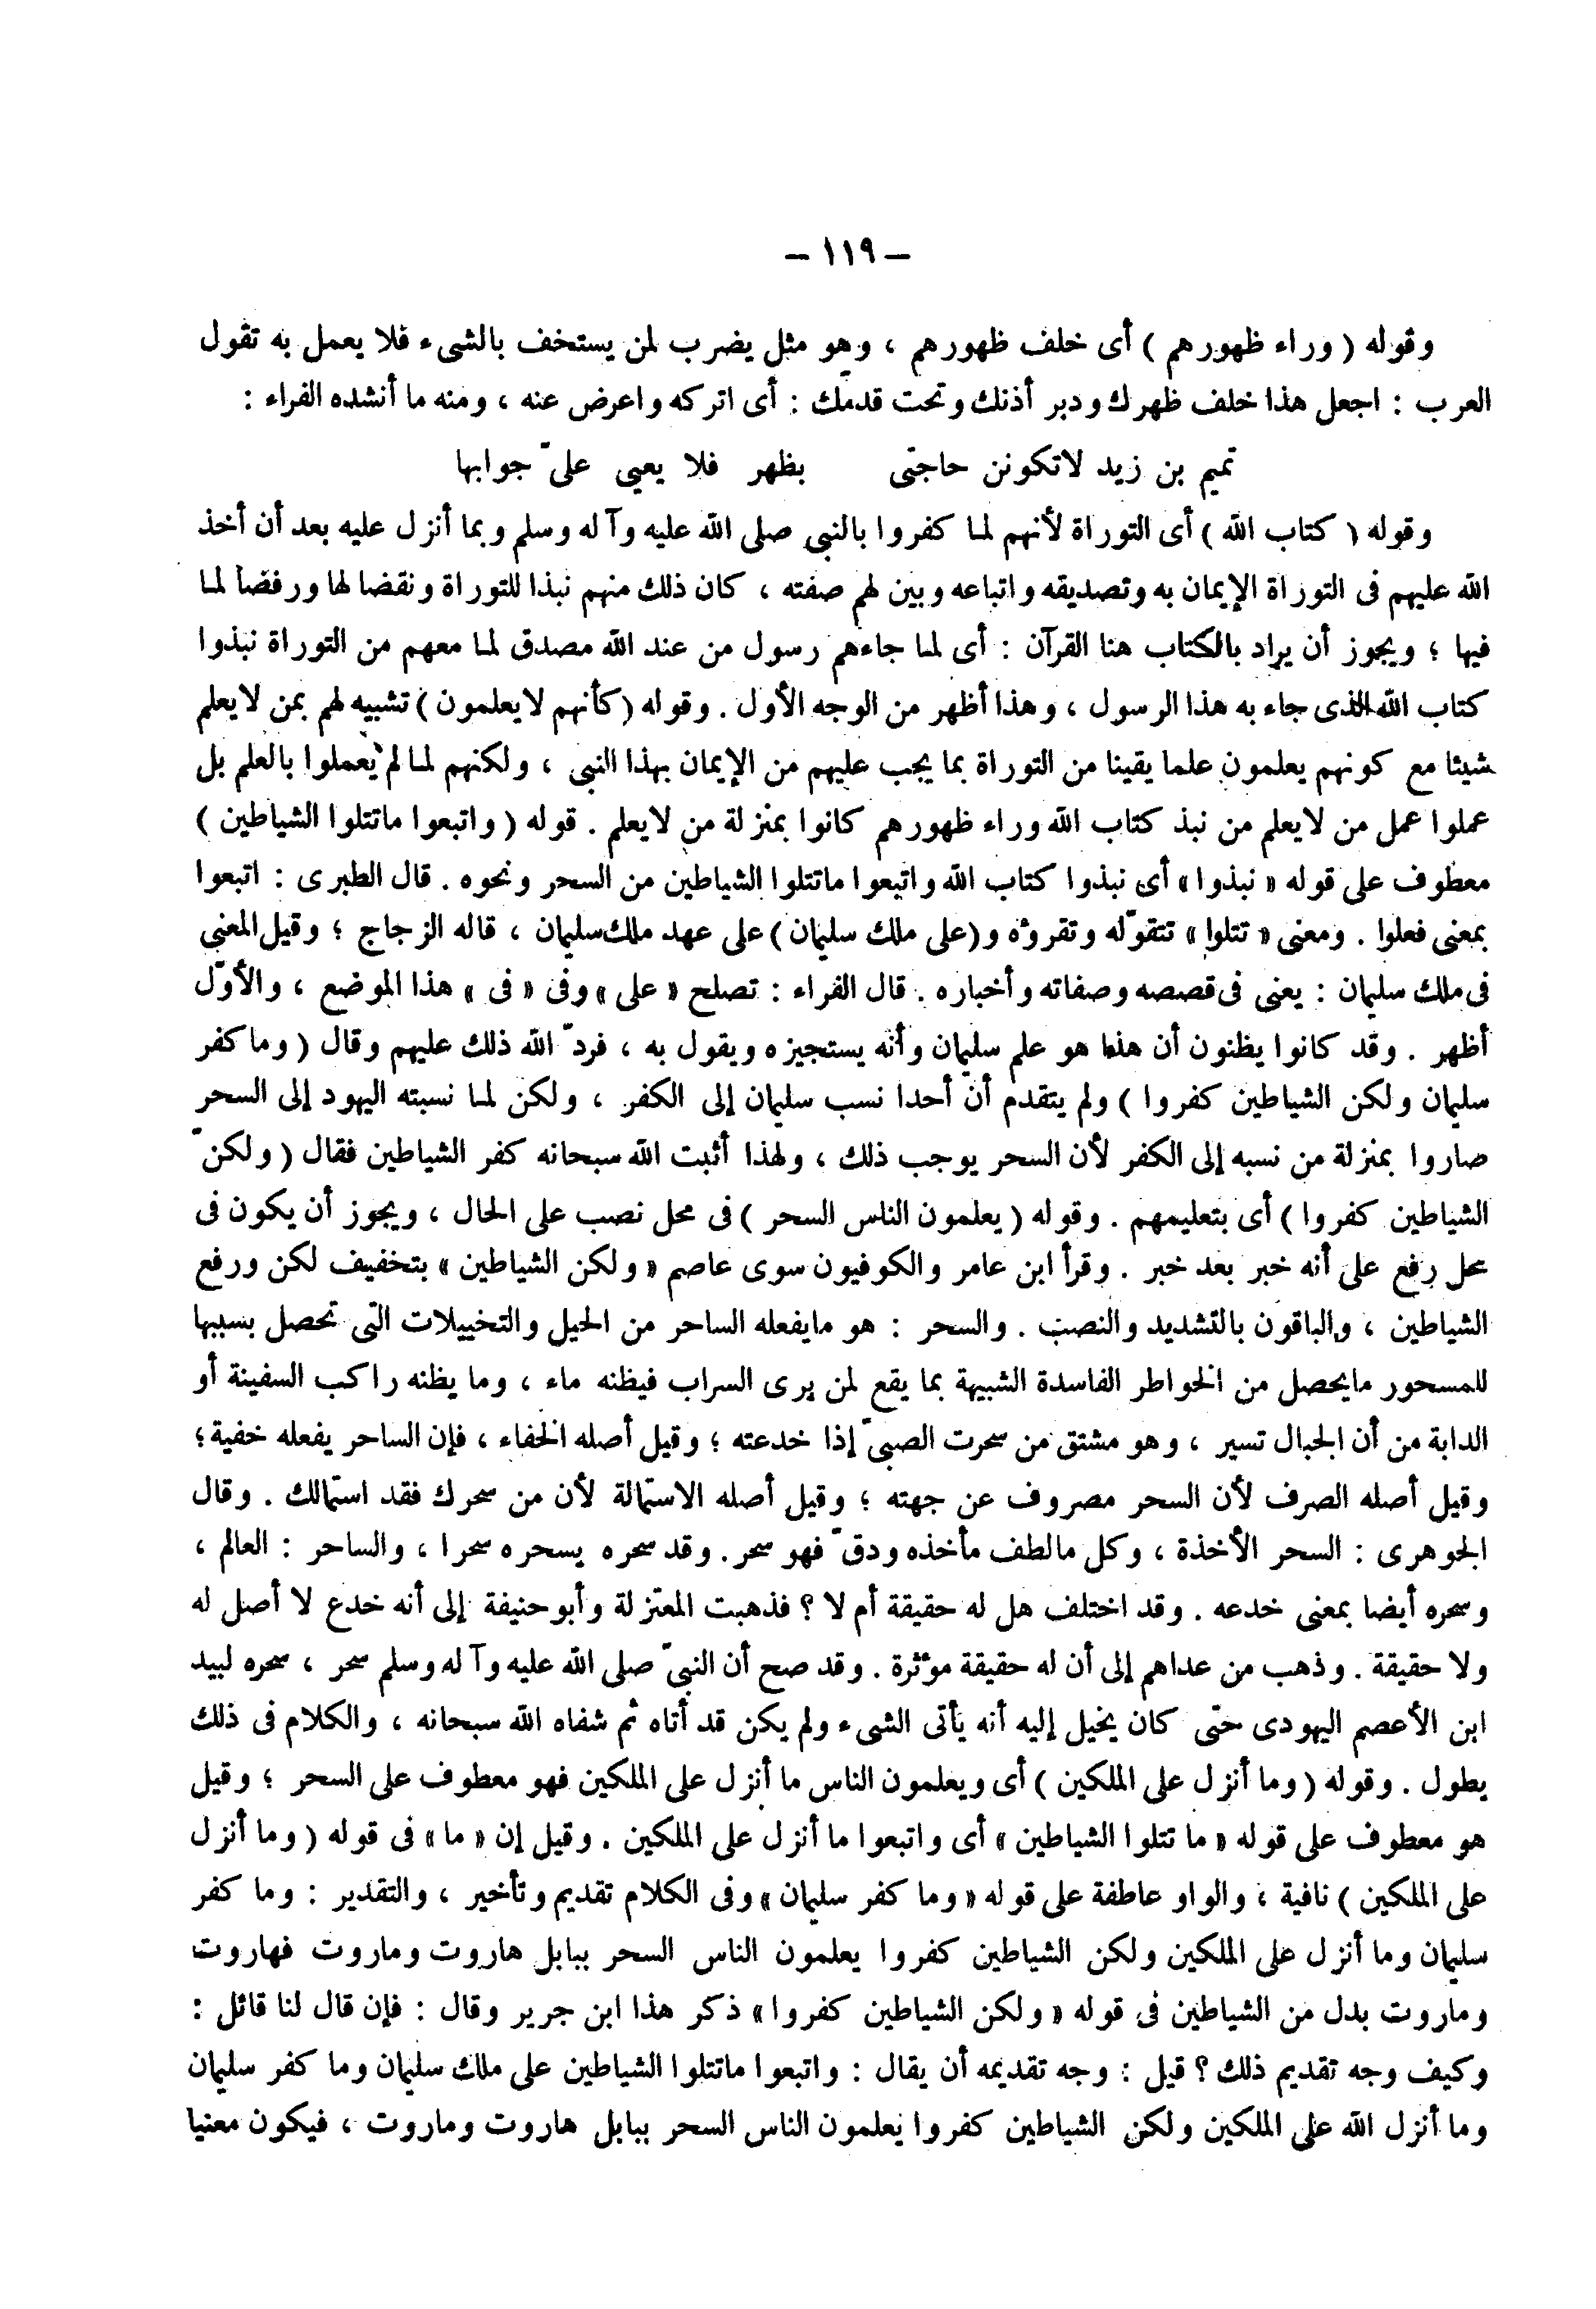 – ١١٩ –
وقوله ( وراء ظهورهم ) أى خلف ظهورهم ، وهو مثل يضرب لمن يستخف بالشىء فلا يعمل به تقول
العرب : اجعل هذا خلف ظهرك ودبر أذنك وتحت قدمك : أى اتركه واعرض عنه ، ومنه ما أنشده الفراء :
تميم بن زيد لاتكونن حاجتى بظهر فلا يعيى علىّ جوابها
وقوله ( كتاب الله ) أى التوراة لأنهم لما كفروا بالنبى صلى الله عليه وآله وسلم وبما أنزل عليه بعد أن أخذ
الله عليهم فى التوراة الإيمان به وتصديقه واتباعه وبين لهم صفته ، كان ذلك منهم نبذا للتوراة ونقضا لها ورفضا لما
فيها ؛ ويجوز أن يراد بالكتاب هنا القرآن : أى لما جاءهم رسول من عند الله مصدق لما معهم من التوراة نبذوا
كتاب الله الذى جاء به هذا الرسول ، وهذا أظهر من الوجه الأول . وقوله (كأنهم لايعلمون ) تشبيه لهم بمن لايعلم
شيئا مع كونهم يعلمون علما يقينا من التوراة بما يجب عليهم من الإيمان بهذا النبى ، ولكنهم لما لم يعملوا بالعلم بل
عملوا عمل من لايعلم من نبذ كتاب الله وراء ظهورهم كانوا بمنزلة من لايعلم . قوله ( واتبعوا ماتتلوا الشياطين )
معطوف على قوله « نبذوا » أى نبذوا كتاب الله واتبعوا ماتتلوا الشياطين من السحر ونحوه . قال الطبرى : اتبعوا
بمعنى فعلوا . ومعنى « تتلوا » تتقوّله وتقرؤه و(على ملك سليمان ) على عهد ملك سليمان ، قاله الزجاج ؛ وقيل المعنى
فى ملك سليمان : يعنى فى قصصه وصفاته وأخباره . قال الفراء : تصلح « على » وفى « فى » هذا الموضع ، والأوّل
أظهر . وقد كانوا يظنون أن هذا هو علم سليمان وأنه يستجيزه ويقول به ، فردّ الله ذلك عليهم وقال ( وما كفر
سليمان ولكن الشياطين كفروا ) ولم يتقدم أن أحدا نسب سليمان إلى الكفر ، ولكن لما نسبته اليهود إلى السحر
صاروا بمنزلة من نسبه إلى الكفر لأن السحر يوجب ذلك ، ولهذا أثبت الله سبحانه كفر الشياطين فقال ( ولكنّ
الشياطين كفروا ) أى بتعليمهم . وقوله ( يعلمون الناس السحر ) فى محل نصب على الحال ، ويجوز أن يكون فى
محل رفع على أنه خبر بعد خبر . وقرأ ابن عامر والكوفيون سوى عاصم « ولكن الشياطين » بتخفيف لكن ورفع
الشياطين ، والباقون بالتشديد والنصب . والسحر : هو مايفعله الساحر من الحيل والتخييلات التى تحصل بسببها
للمسحور مايحصل من الخواطر الفاسدة الشبيهة بما يقع لمن يرى السراب فيظنه ماء ، وما يظنه راكب السفينة أو
الدابة من أن الجبال تسير ، وهو مشتق من سحرت الصبىّ إذا خدعته ؛ وقيل أصله الخفاء ، فإن الساحر يفعله خفية ؛
وقيل أصله الصرف لأن السحر مصروف عن جهته ؛ وقيل أصله الاستمالة لأن من سحرك فقد استمالك . وقال
الجوهرى : السحر الأخذة ، وكل مالطف مأخذه ودقّ فهو سحر . وقد سحره يسحره سحرا ، والساحر : العالم ،
وسحره أيضا بمعنى خدعه . وقد اختلف هل له حقيقة أم لا ؟ فذهبت المعتزلة وأبو حنيفة إلى أنه خدع لا أصل له
ولا حقيقة . وذهب من عداهم إلى أن له حقيقة مؤثرة . وقد صح أن النبىّ صلى الله عليه وآله وسلم سحر ، سحره لبيد
ابن الأعصم اليهودى حتى كان يخيل إليه أنه يأتى الشىء ولم يكن قد أتاه ثم شفاه الله سبحانه ، والكلام فى ذلك
يطول . وقوله ( وما أنزل على الملكين ) أى ويعلمون الناس ما أنزل على الملكين فهو معطوف على السحر ؛ وقيل
هو معطوف على قوله « ما تتلوا الشياطين » أى واتبعوا ما أنزل على الملكين . وقيل إن « ما » فى قوله ( وما أنزل
على الملكين ) نافية ، والواو عاطفة على قوله « وما كفر سليمان » وفى الكلام تقديم وتأخير ، والتقدير : وما كفر
سليمان وما أنزل على الملكين ولكن الشياطين كفروا يعلمون الناس السحر ببابل هاروت وماروت فهاروت
وماروت بدل من الشياطين فى قوله « ولكن الشياطين كفروا » ذكر هذا ابن جرير وقال : فإن قال لنا قائل :
وكيف وجه تقديم ذلك ؟ قيل : وجه تقديمه أن يقال : واتبعوا ماتتلوا الشياطين على ملك سليمان وما كفر سليمان
وما أنزل الله على الملكين ولكن الشياطين كفروا يعلمون الناس السحر ببابل هاروت وماروت ، فيكون معنيا